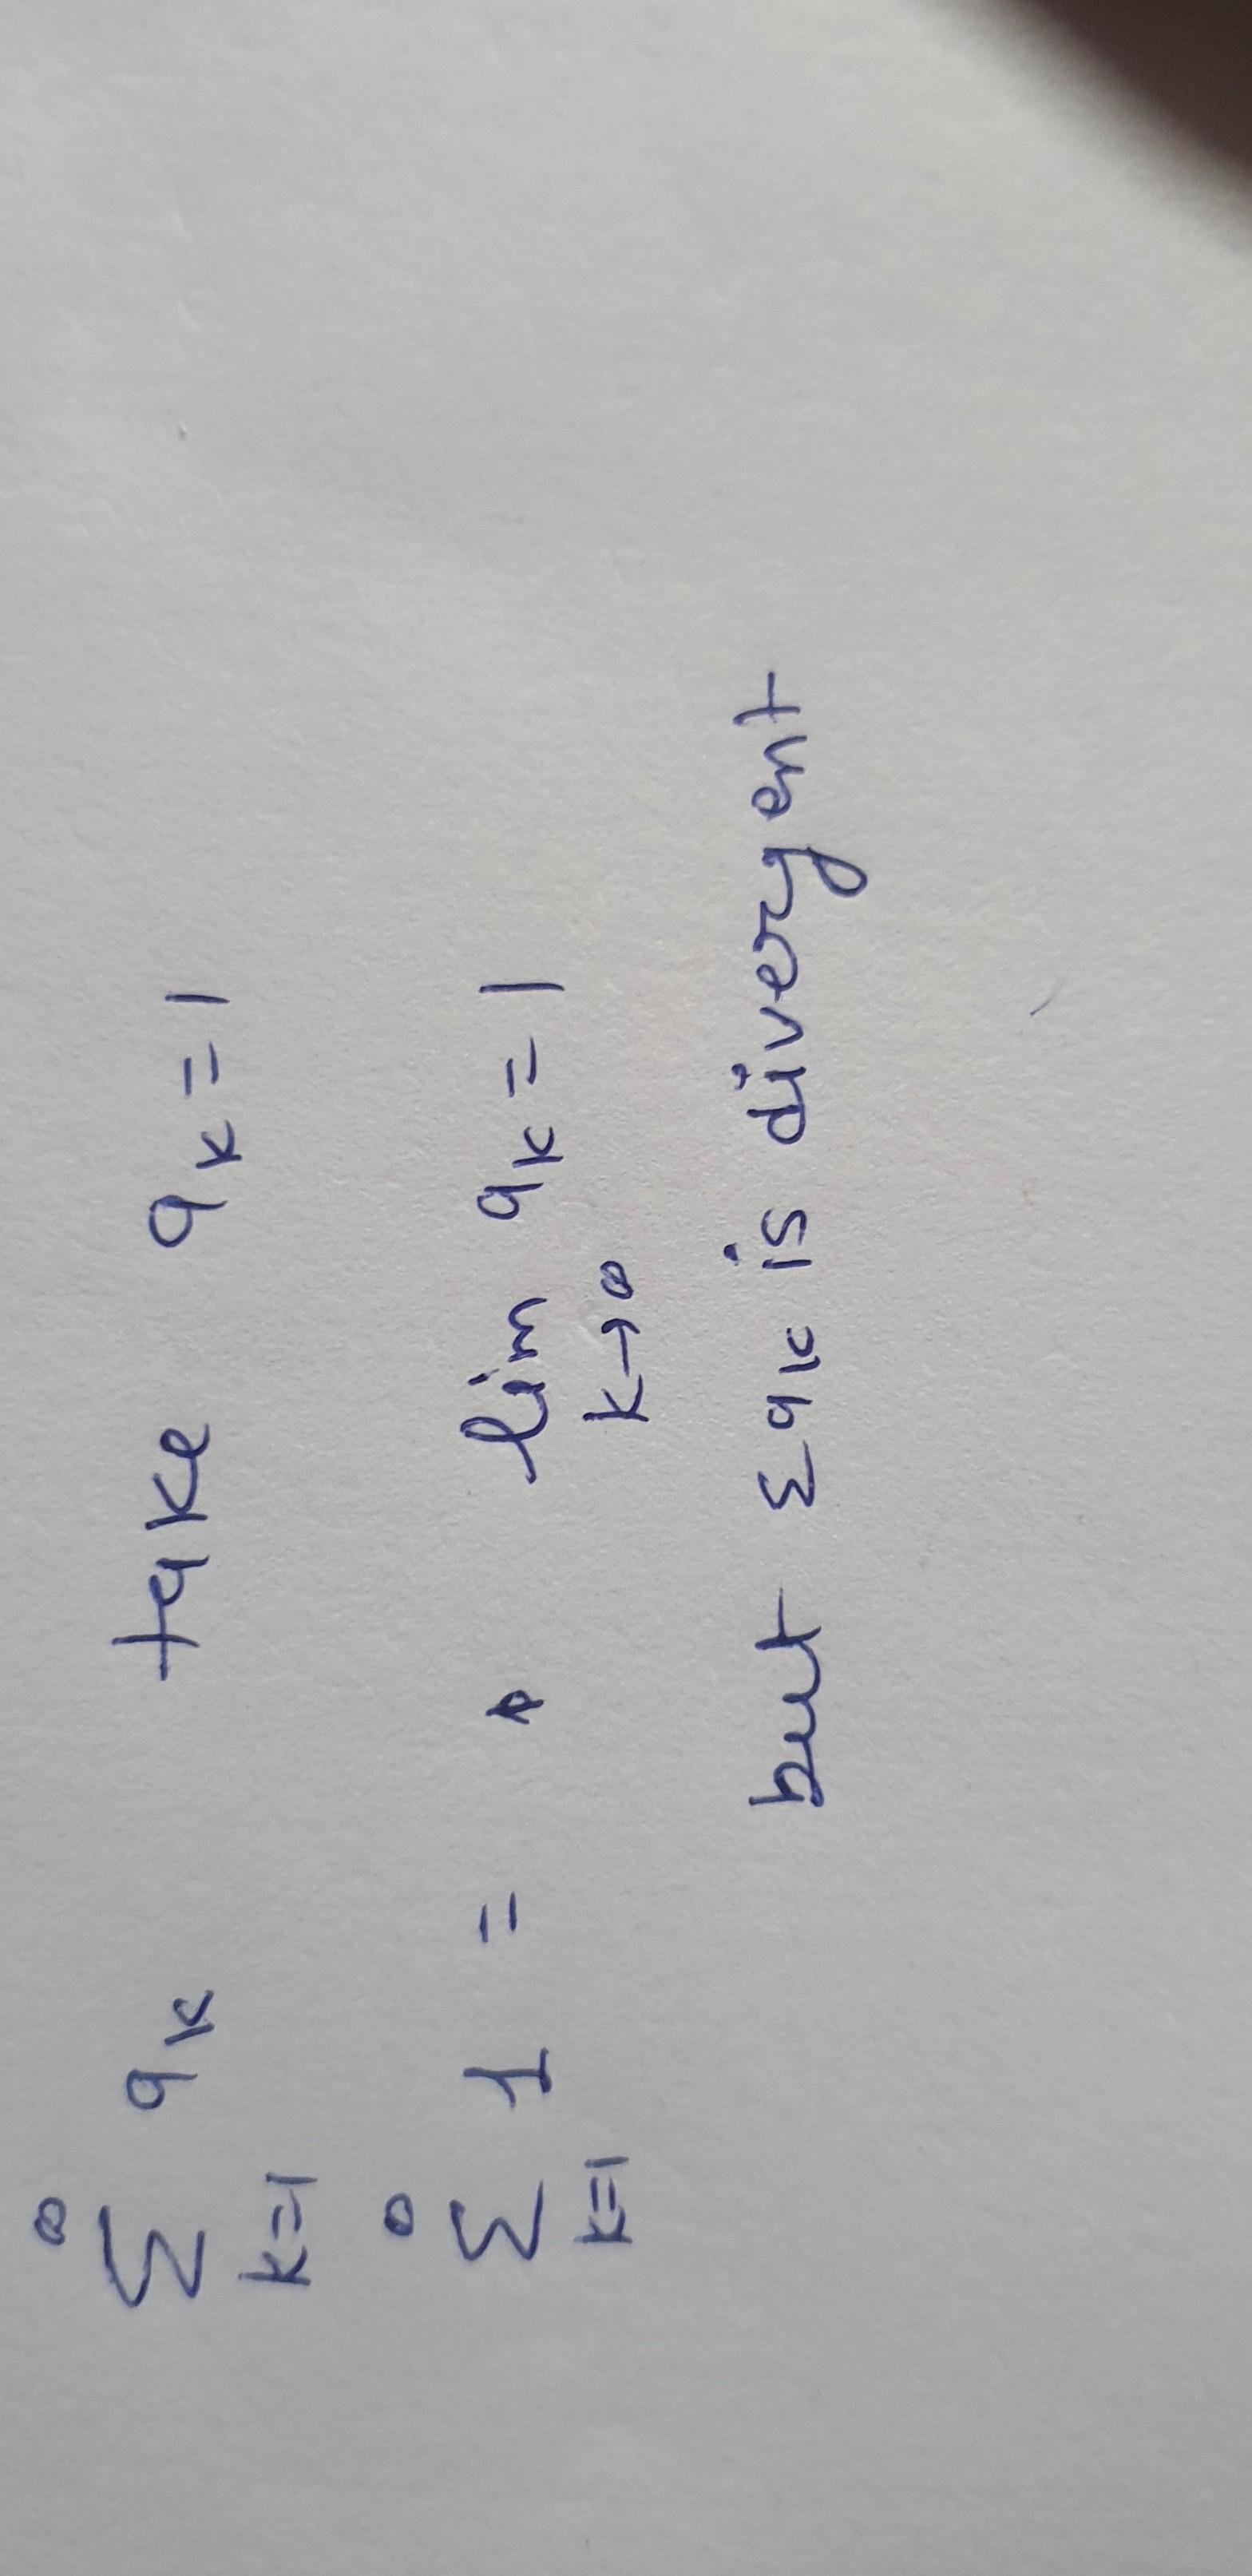 ∞
Σ a_k take a_k = 1
k=1
∞
Σ 1 = lim a_k = 1
k=1 k→∞
but Σ a_k is divergent